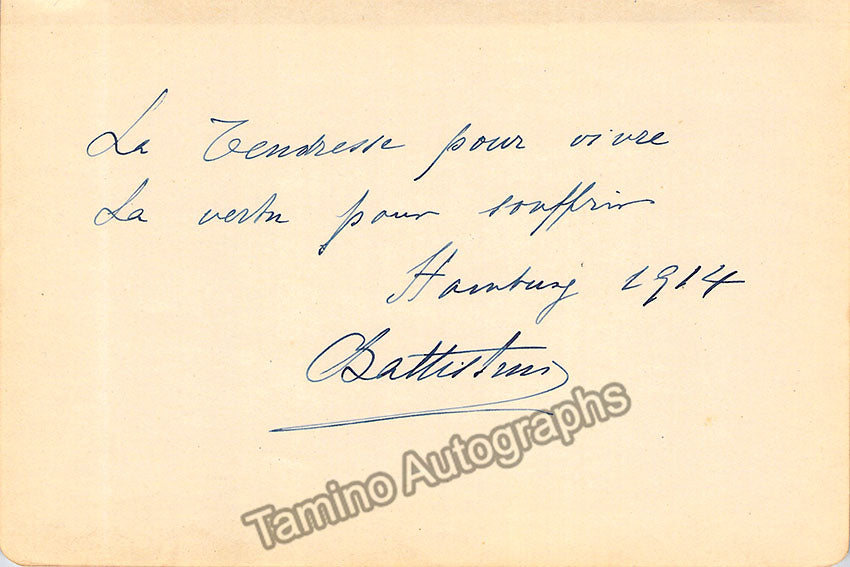 La Tendresse pour vivre
La vertu pour souffrir
Hamburg 1914
Battistini
Tamino Autographs